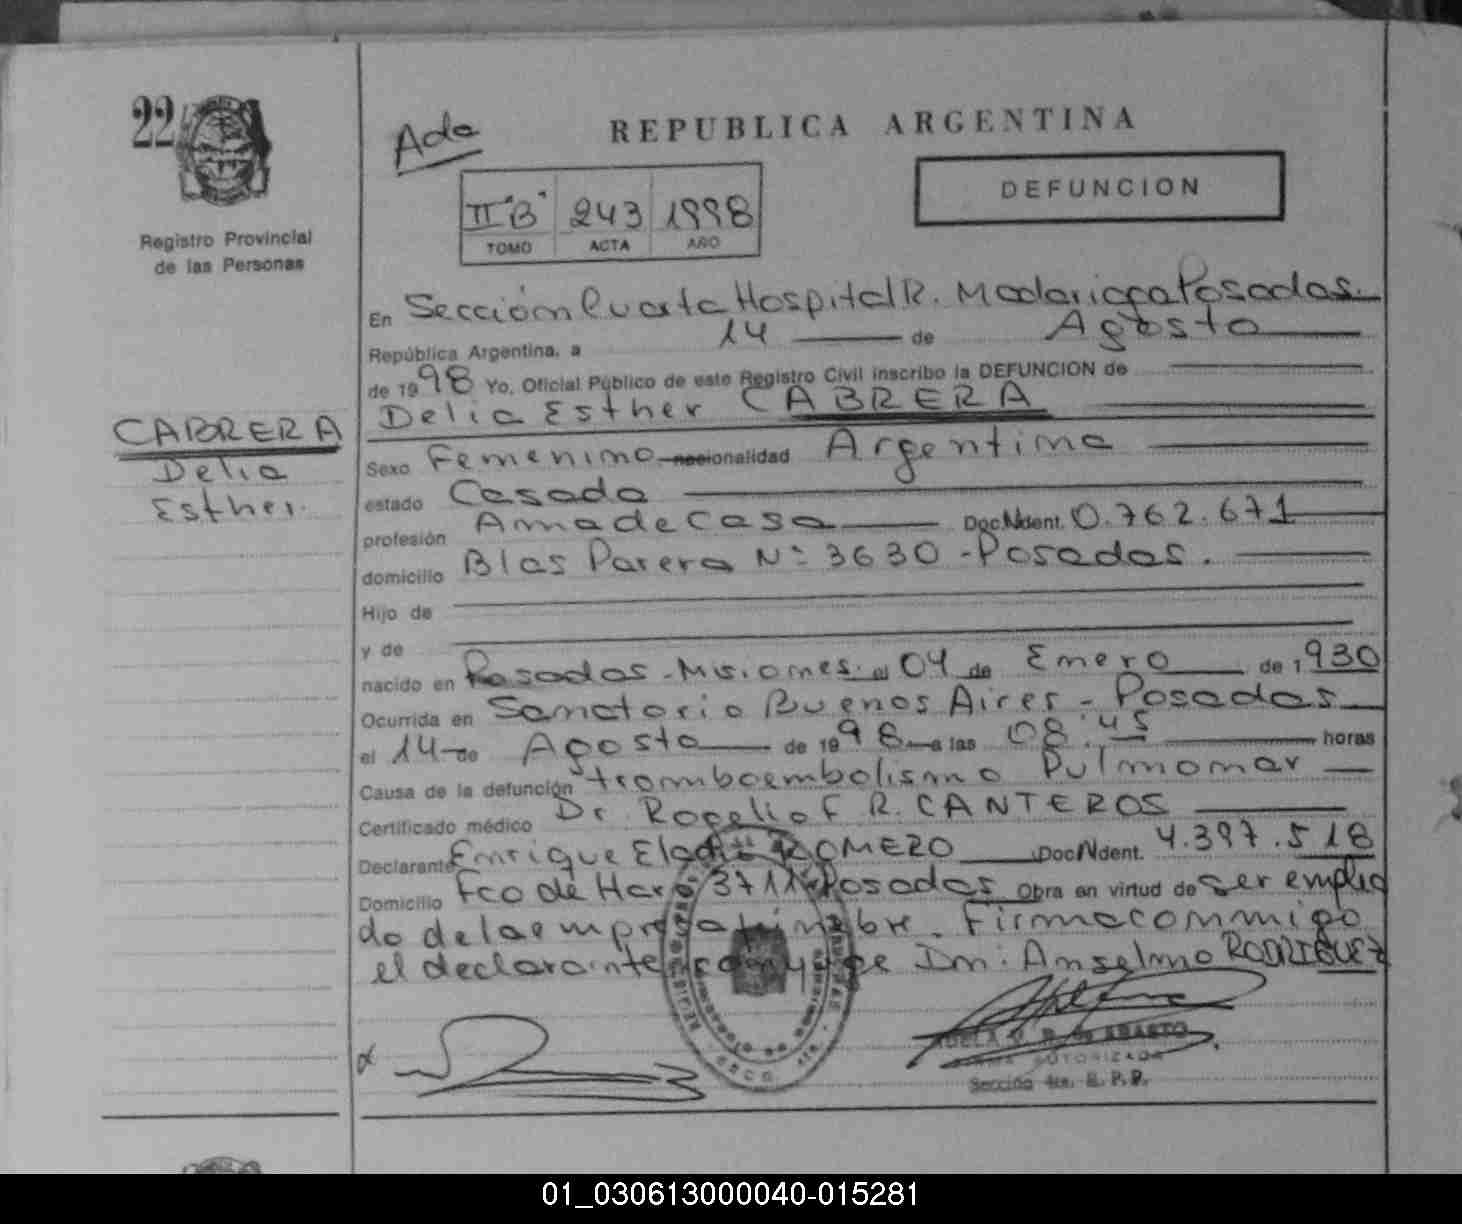 22
Registro Provincial
de las Personas
Ada
REPUBLICA ARGENTINA
DEFUNCION
II "B" 243 1998
TOMO ACTA AÑO
CABRERA
Delia
Esther.
En Sección Cuarta Hospital R. Madariaga Posadas.
República Argentina, a 14 de Agosto
de 1998 Yo, Oficial Público de este Registro Civil inscribo la DEFUNCION de
Delia Esther CABRERA
Sexo Femenino nacionalidad Argentina
estado Casada
profesión Ama de casa Doc. Ident. 0.762.671
domicilio Blas Parera N: 3630 - Posadas.
Hijo de
y de
nacido en Posadas - Misiones. el 04 de Enero de 1930
Ocurrida en Sanatorio Buenos Aires - Posadas
el 14 de Agosto de 1998 a las 08:45 horas
Causa de la defunción tromboembolismo Pulmonar
Certificado médico Dr. Rogelio F. R. CANTEROS
Declarante Enrique Eladio ROMERO Doc. Ident. 4.397.518
Domicilio Fco de Haro 3711 Posadas Obra en virtud de ser emplea
do de la empresa fúnebre. Firma conmigo
el declarante conyuge Dn: Anselmo RODRIGUEZ
ADELA
AUTORIZADA
Sección 4ta. R. P. P.
01_030613000040-015281